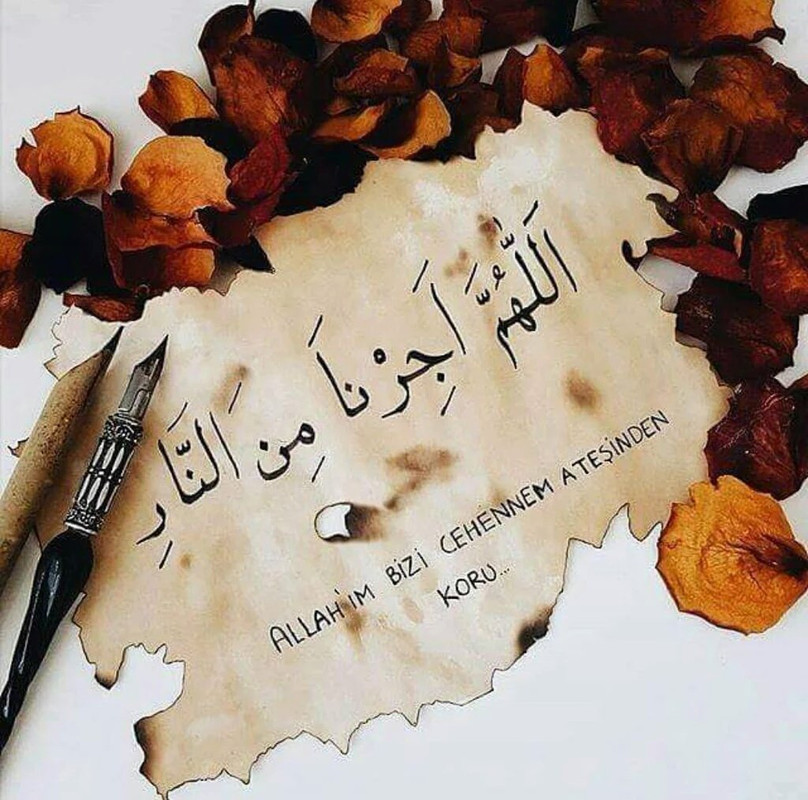 اَللَّهُمَّ اَجِرْنَا مِنَ النَّارِ
ALLAH'IM BİZİ CEHENNEM ATEŞİNDEN
KORU...